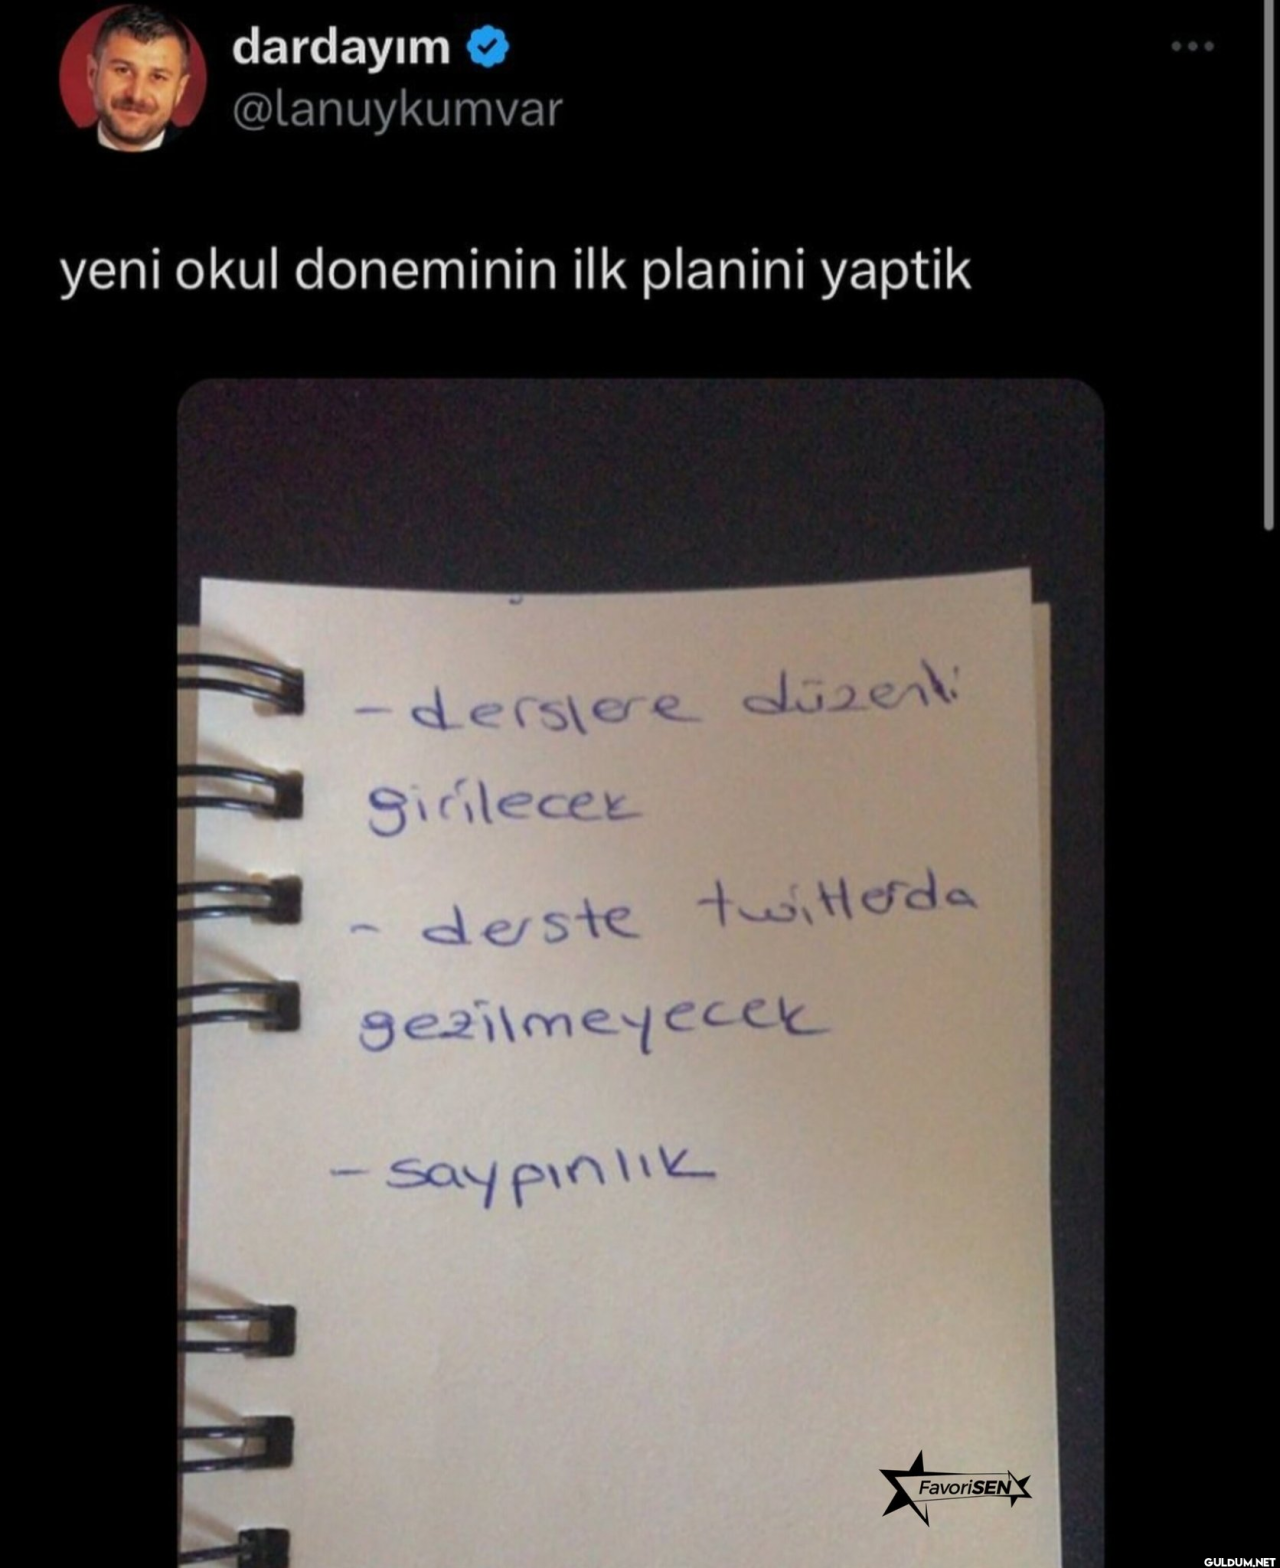 dardayım
@lanuykumvar
yeni okul doneminin ilk planini yaptik
- derslere düzenli
girilecek
- derste twitterda
gezilmeyecek
- saypınlık
FavoriSEN
GULDUM.NET